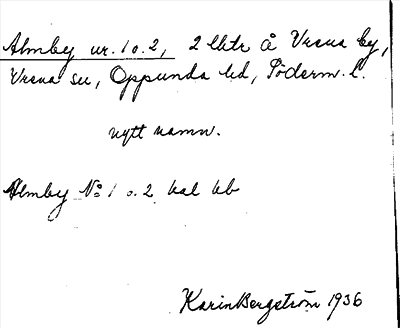 Almby nr. 1 o. 2, 2 lhtr å Vrena by,
Vrena sn, Oppunda hd, Söderm. l.
nytt namn.
Almby No 1 o. 2 hal hb
Karin Bergström 1936